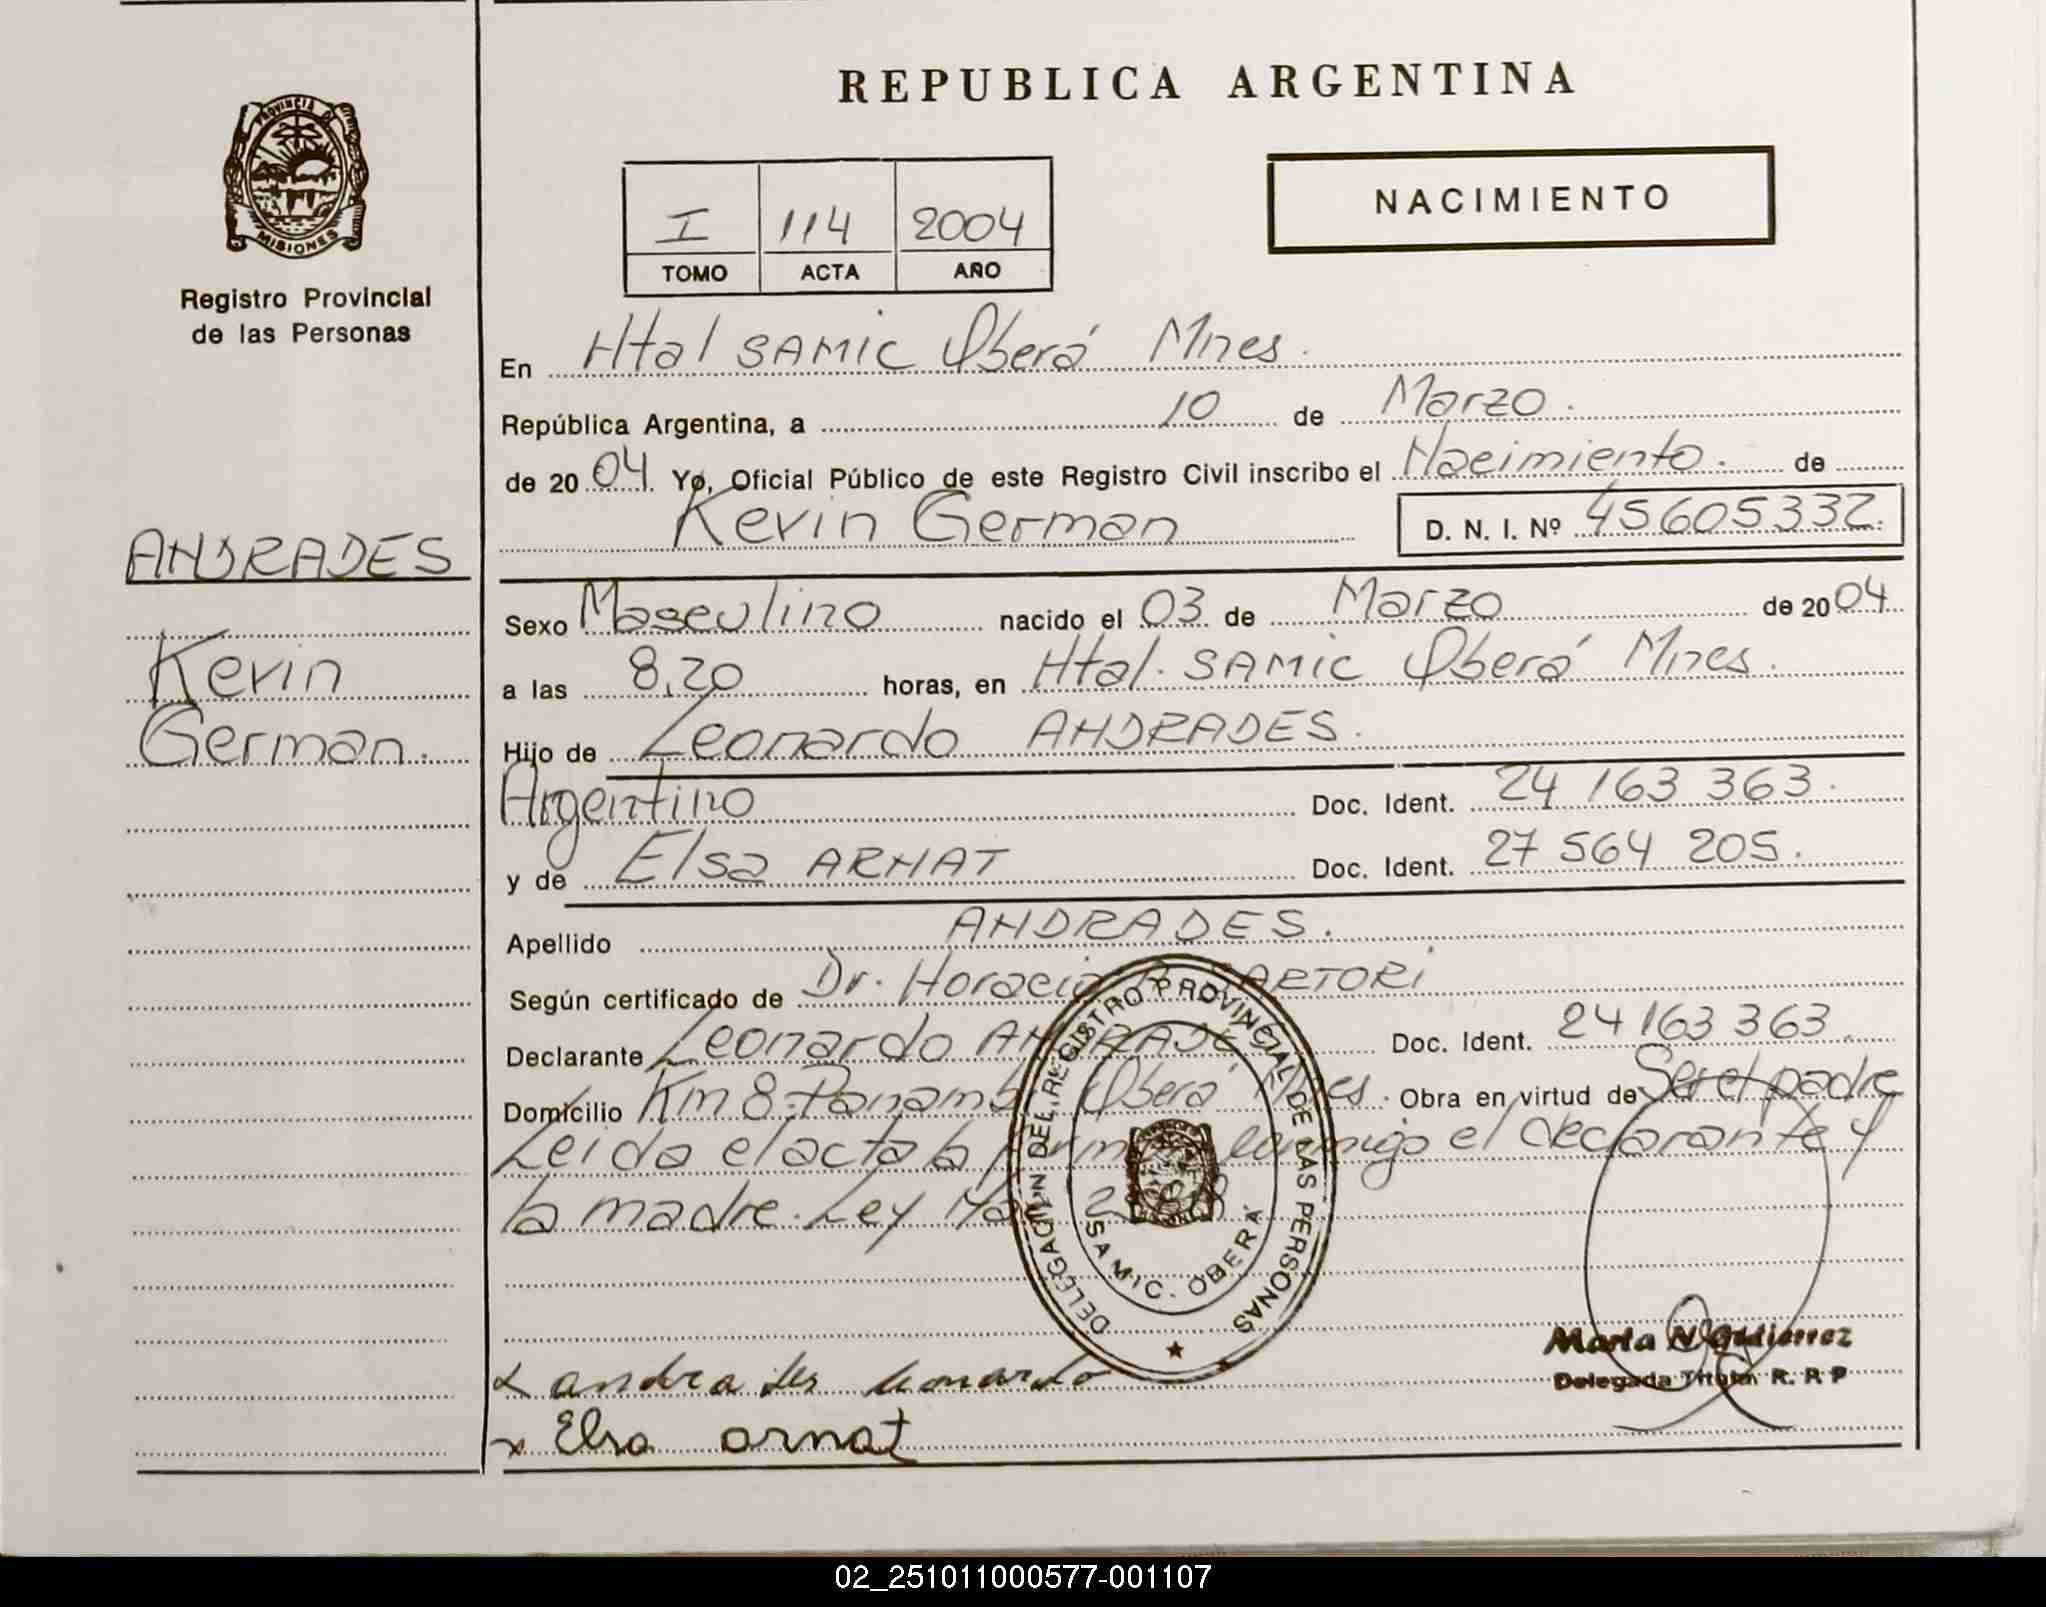 REPUBLICA ARGENTINA
PROVINCIA DE MISIONES
Registro Provincial
de las Personas
NACIMIENTO
I 114 2004
TOMO ACTA AÑO
En Htal SAMIC Oberá Mnes.
República Argentina, a 10 de Marzo.
de 2004. Yo, Oficial Público de este Registro Civil inscribo el Nacimiento. de
Kevin German D. N. I. Nº 45605332.
ANDRADES
Kevin
German.
Sexo Masculino nacido el 03 de Marzo de 2004
a las 8,20 horas, en Htal. SAMIC Oberá Mnes.
Hijo de Leonardo ANDRADES.
Argentino Doc. Ident. 24 163 363.
y de Elsa ARNAT Doc. Ident. 27 564 205.
Apellido ANDRADES.
Según certificado de Dr. Horacio SARTORI
Declarante Leonardo ANDRADES Doc. Ident. 24 163 363.
Domicilio Km 8-Panambí Oberá Mnes. Obra en virtud de Ser el padre
Leida el acta la firma conmigo el declarante y
la madre. Ley
DELEGACION DEL REGISTRO PROVINCIAL DE LAS PERSONAS
SAMIC. OBERÁ
Maria N Gutierrez
Delegada Titular R. R P
x andrades leonardo
x Elsa arnat
02_251011000577-001107